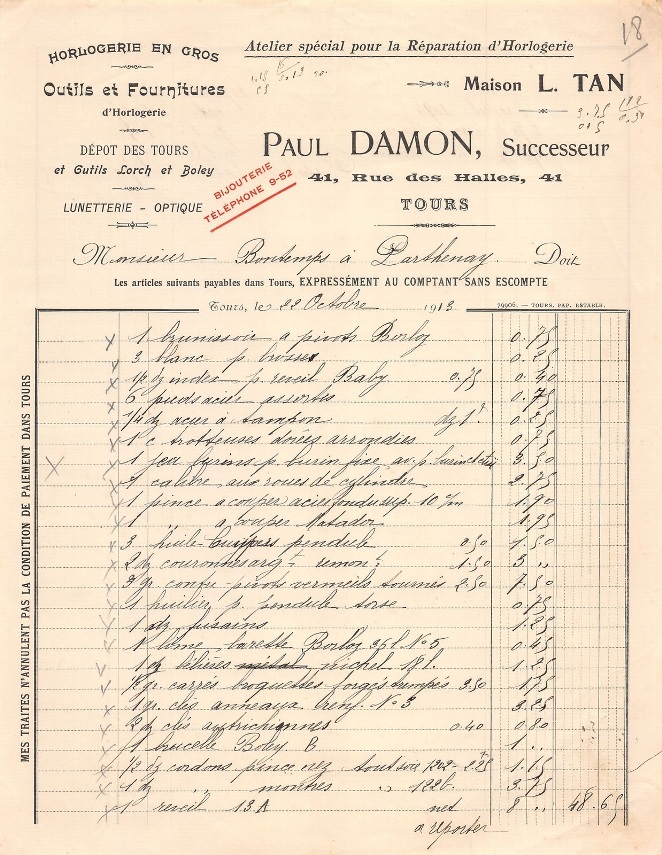 18
HORLOGERIE EN GROS
Outils et Fournitures
d'Horlogerie
DÉPOT DES TOURS
et Outils Lorch et Boley
LUNETTERIE - OPTIQUE
Atelier spécial pour la Réparation d'Horlogerie
Maison L. TAN
PAUL DAMON, Successeur
41, Rue des Halles, 41
TOURS
BIJOUTERIE
TÉLÉPHONE 9-52
Monsieur Bontemps à Parthenay Doit
Les articles suivants payables dans Tours, EXPRESSÉMENT AU COMPTANT SANS ESCOMPTE
Tours, le 22 Octobre 1913
79906. - TOURS. PAP. ESTABLE.
MES TRAITES N'ANNULENT PAS LA CONDITION DE PAIEMENT DANS TOURS
1 brunissoir a pivots Borloz 0.75
3 blanc p. brosses 0.25
1/2 dz index p. reveil Baby 0.75 0.40
6 pieds acier assortis 0.75
1/4 dz acier à tampon dz 1 0.25
1 c trotteuses dorées arrondies 0.75
1 jeu burins p. burin fixe av. p. burin 3.50
1 calibre aux roues de cylindre 2.75
1 pince a couper acier fondu sup. 10 c/m 1.90
1 " a couper Matador 1.95
3 huile Cuypers pendule 0.50 1.50
2 dz couronnes argt remontr 1.50 3 "
3 gr. contre-pivots vermeils tournés 2.50 7.50
1 huilier p. pendule torse 0.75
1 dz fusains 1.25
1 lime barette Borloz N° 5 0.45
1 dz bélières nickel 18 l. 1.25
1/2 gr. carrés baguettes forgés trempés 3.50 1.75
1 gr. clés anneaux N° 3 3.25
2 dz clés autrichiennes 0.40 0.80
1 brucelle Boley B 1 "
1/2 dz cordons pince nez tout soie 2.25 1.15
1 dz " montres " 122b. 3.75
1 reveil 13 A net 8 " 48.65
a reporter